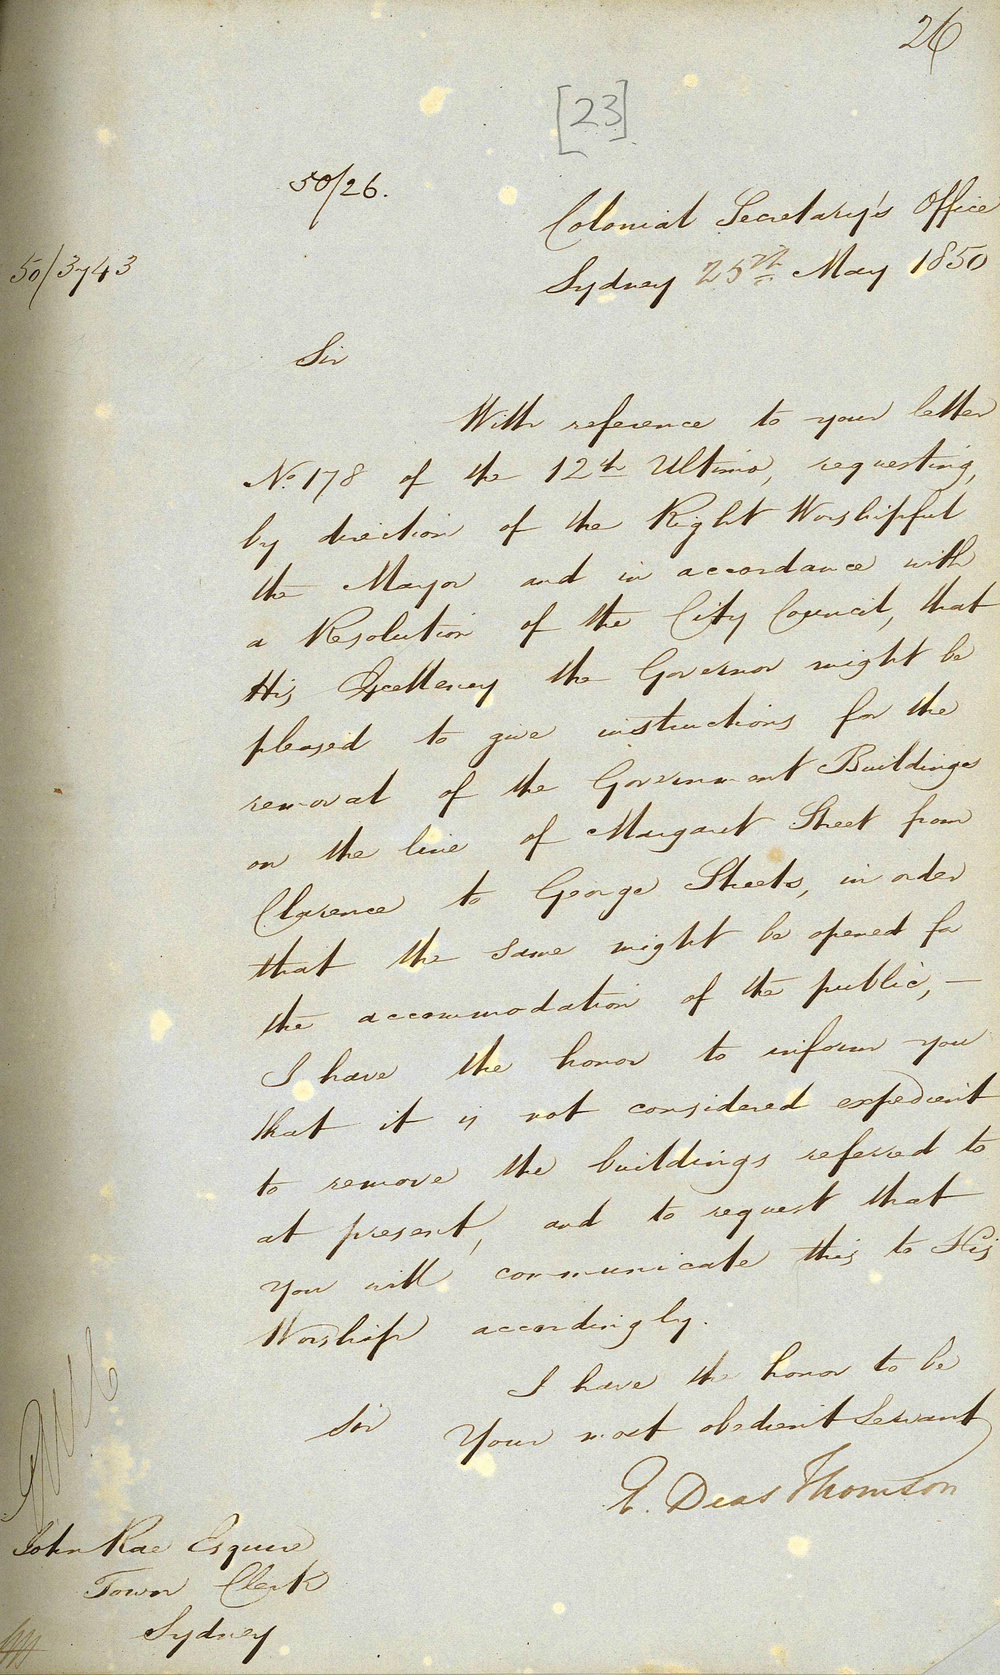 26
[23]
50/26.
Colonial Secretary's Office
50/3743
Sydney 25th May 1850
Sir
With reference to your letter
No. 178 of the 12th Ultimo, requesting,
by direction of the Right Worshipful
the Mayor and in accordance with
a Resolution of the City Council, that
His Excellency the Governor might be
pleased to give instructions for the
removal of the Government Buildings
on the line of Margaret Street from
Clarence to George Streets, in order
that the same might be opened for
the accommodation of the public, —
I have the honor to inform you
that it is not considered expedient
to remove the buildings referred to
at present, and to request that
you will communicate this to His
Worship accordingly.
I have the honor to be
Sir
Your most obedient Servant
E. Deas Thomson
John Rae Esquire
Town Clerk
Sydney